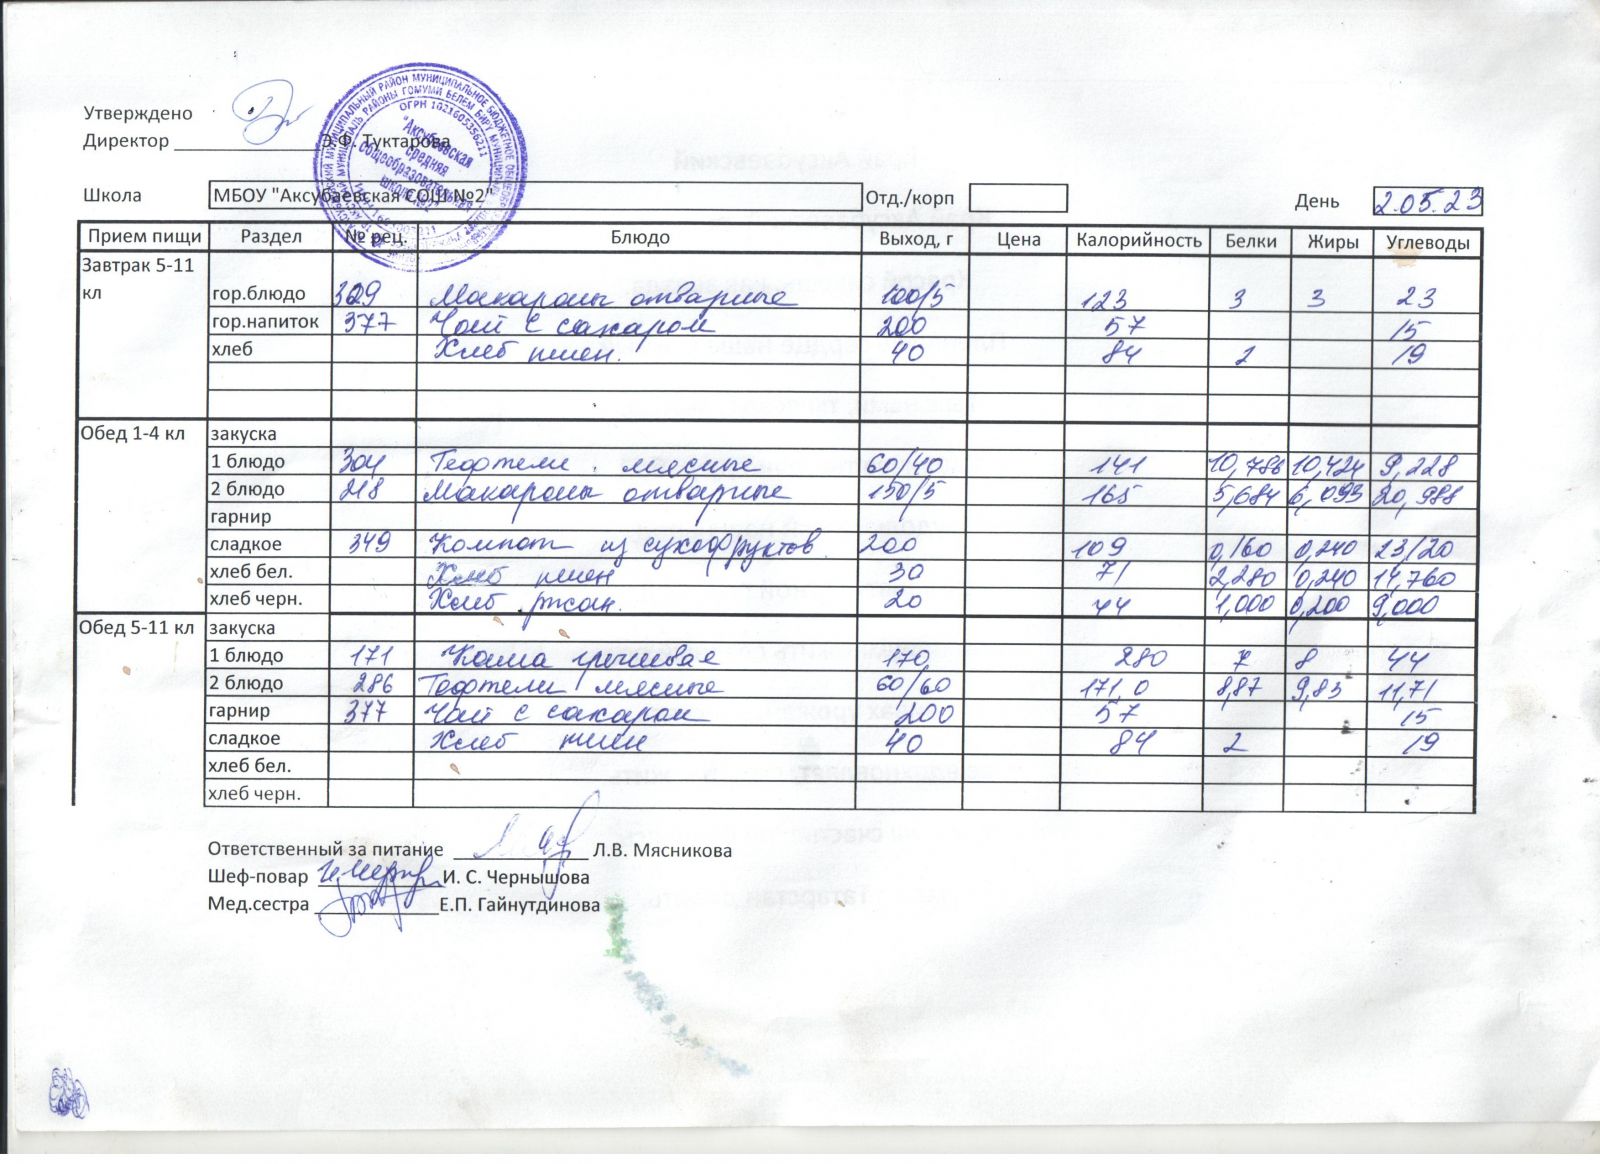 Утверждено
Директор Э.Ф. Туктарова
МУНИЦИПАЛЬНЫЙ РАЙОН МУНИЦИПАЛЬНОЕ БЮДЖЕТНОЕ
РАЙОНЫ ГОМУМИ БЕЛЕМ БИРҮ
ОГРН 1021605356211
"Аксубаевская
средняя
общеобразовательная
школа №2"
Школа МБОУ "Аксубаевская СОШ №2" Отд./корп День 2.05.23
Прием пищи Раздел № рец. Блюдо Выход, г Цена Калорийность Белки Жиры Углеводы
Завтрак 5-11 кл
гор.блюдо 309 Макароны отварные 100/5 123 3 3 23
гор.напиток 377 Чай с сахаром 200 57 15
хлеб Хлеб пшен. 40 84 2 19
Обед 1-4 кл закуска
1 блюдо 304 Тефтели мясные 60/40 141 10,786 10,424 9,228
2 блюдо 218 Макароны отварные 150/5 165 5,684 6,093 20,988
гарнир
сладкое 349 Компот из сухофруктов 200 109 0,160 0,240 23/20
хлеб бел. Хлеб пшен 30 71 2,280 0,240 14,760
хлеб черн. Хлеб ржан. 20 44 1,000 0,200 9,000
Обед 5-11 кл закуска
1 блюдо 171 Каша гречневая 170 280 7 8 44
2 блюдо 286 Тефтели мясные 60/60 171,0 8,87 9,83 11,71
гарнир 377 Чай с сахаром 200 57 15
сладкое Хлеб пшен 40 84 2 19
хлеб бел.
хлеб черн.
Ответственный за питание Л.В. Мясникова
Шеф-повар И. С. Чернышова
Мед.сестра Е.П. Гайнутдинова